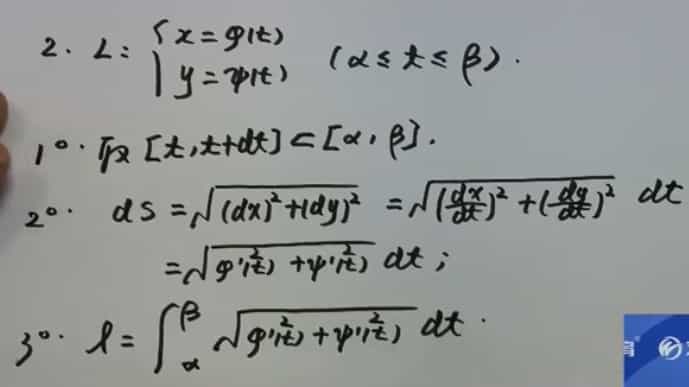 2. L: { x = φ(t)
y = ψ(t) (α ≤ t ≤ β).
1°. 取 [t, t+dt] ⊂ [α, β].
2°. ds = √((dx)² + (dy)²) = √((dx/dt)² + (dy/dt)²) dt
= √(φ'²(t) + ψ'²(t)) dt ;
3°. l = ∫_α^β √(φ'²(t) + ψ'²(t)) dt.
育